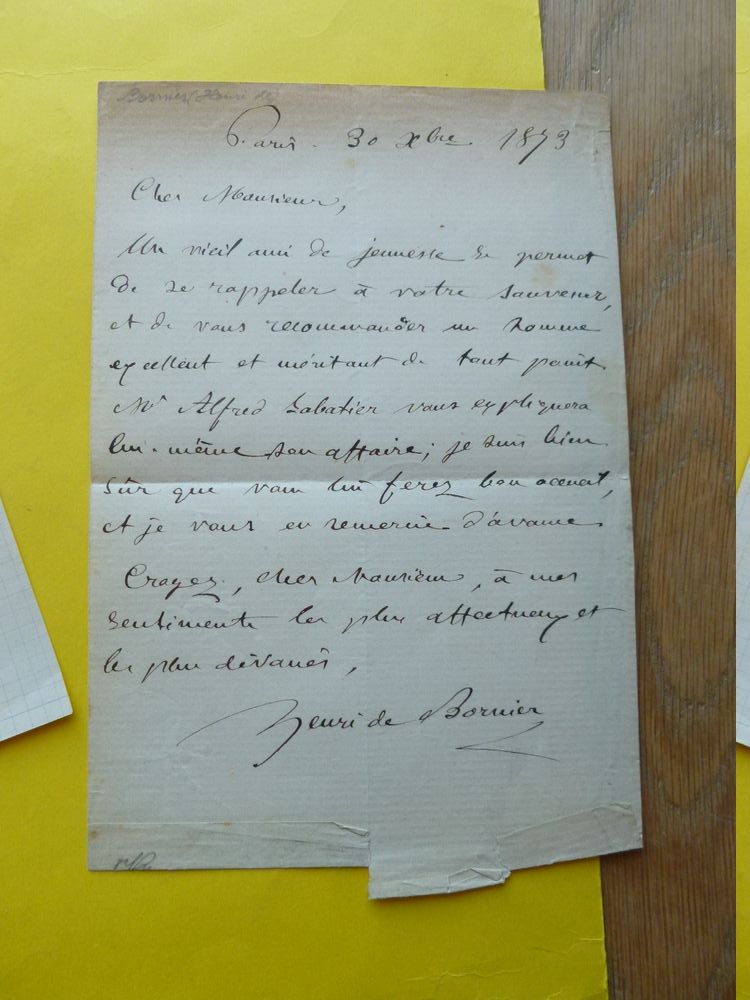 Bornier (Henri de)
Paris. 30 Xbre 1873
Cher Monsieur,
Un vieil ami de jeunesse se permet
de se rappeler à votre souvenir,
et de vous recommander un homme
excellent et méritant de tout point.
Mr Alfred Sabatier vous expliquera
lui-même son affaire; je suis bien
sûr que vous lui ferez bon accueil,
et je vous en remercie d'avance.
Croyez, cher Monsieur, à mes
sentiments les plus affectueux et
les plus dévoués,
Henri de Bornier